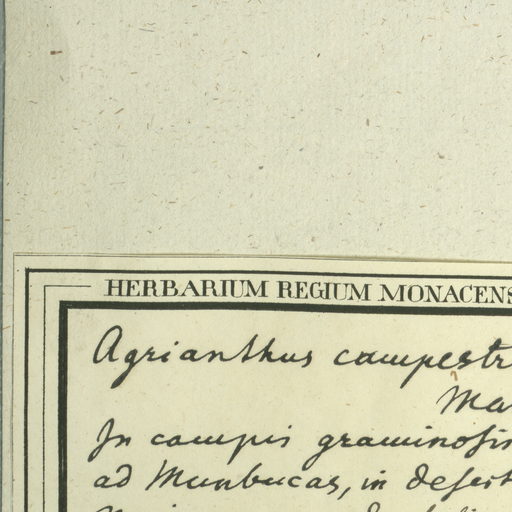 HERBARIUM REGIUM MONACENS
Agrianthus campestr
Ma
In campis graminosis
ad Munbucas, in desert